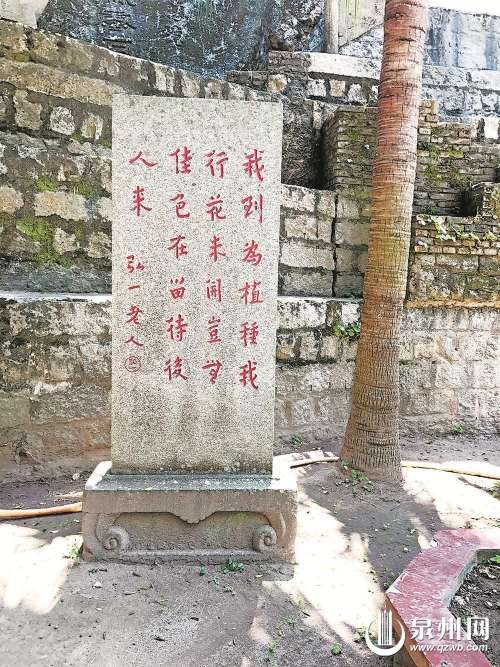 我到為植種我
行花未開豈無
佳色在留待後
人来
弘一老人
泉州网
www.qzwb.com